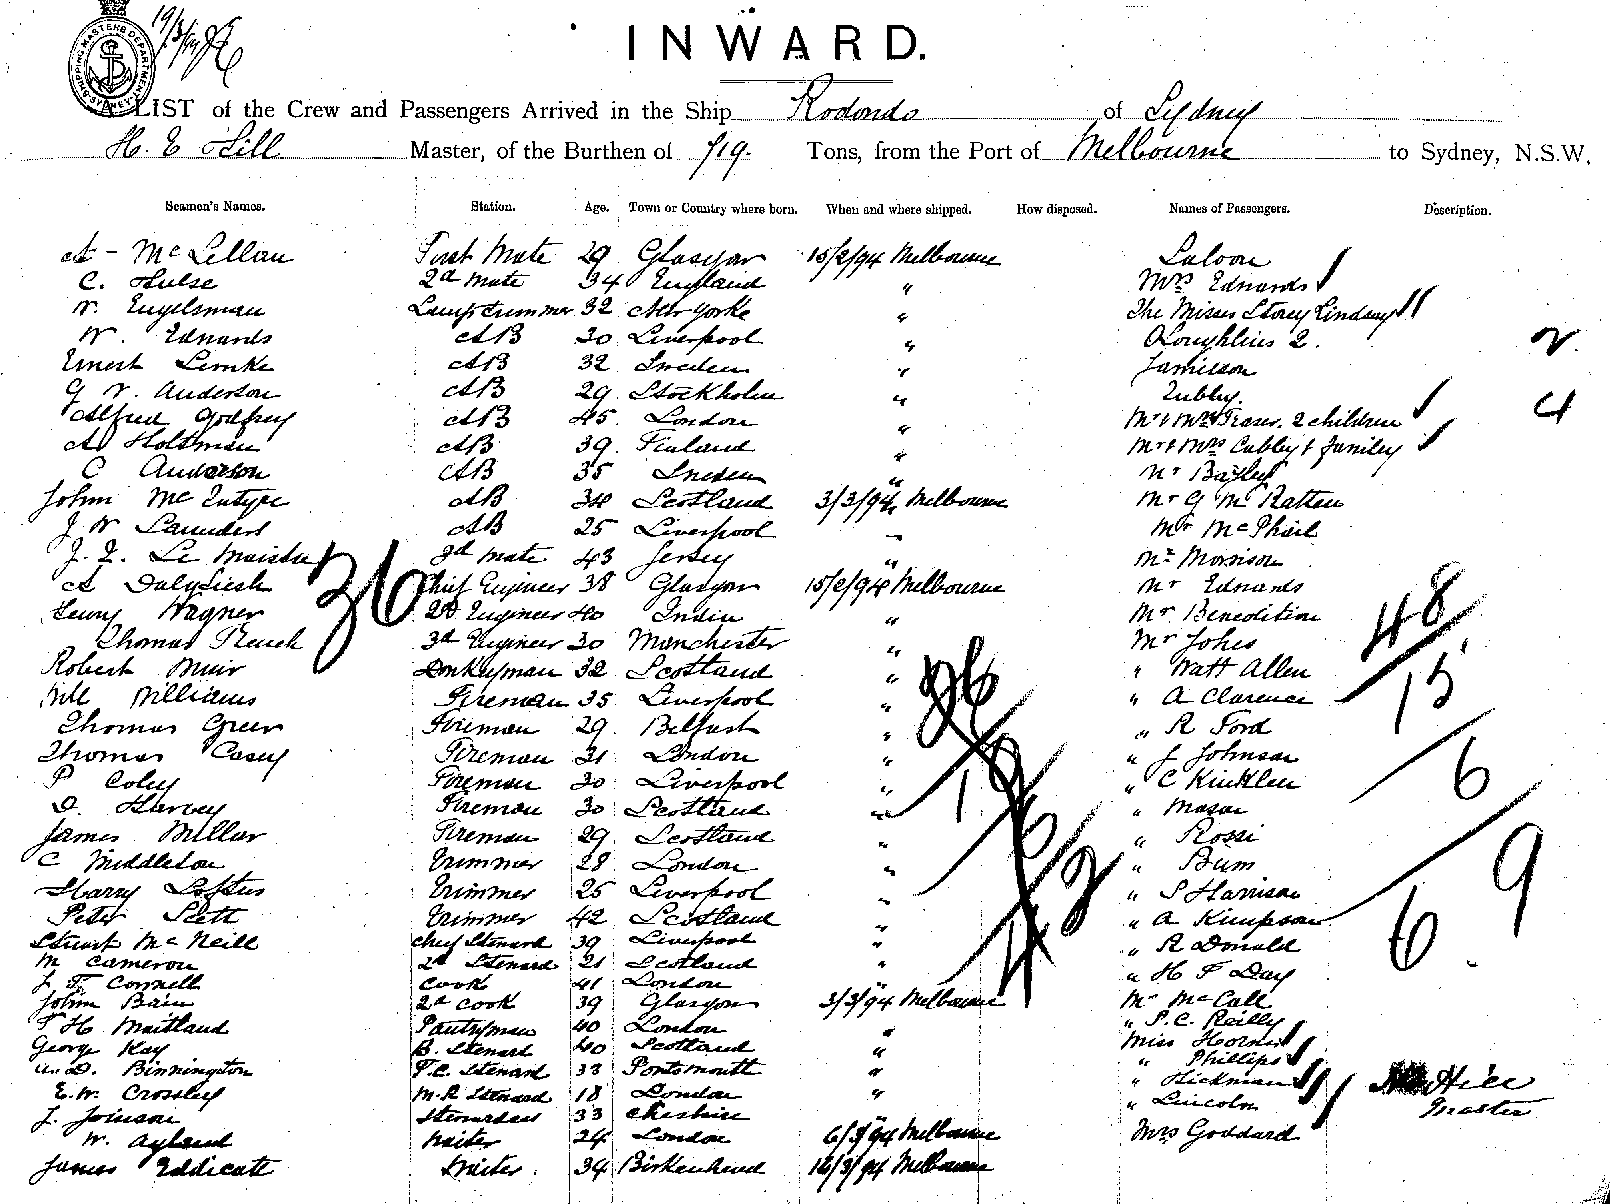 19/3/94
SHIPPING MASTERS DEPARTMENT SYDNEY
INWARD.
A LIST of the Crew and Passengers Arrived in the Ship Rodondo of Sydney
H. E Hill Master, of the Burthen of 719. Tons, from the Port of Melbourne to Sydney, N.S.W.
Seamen's Names. Station. Age. Town or Country where born. When and where shipped. How disposed. Names of Passengers. Description.
A - McLellan First Mate 29 Glasgow 15/2/94 Melbourne Saloon
C. Hulse 2nd Mate 34 England " Mrs Edwards
W. Engelsman Lamp trimmer 32 New Yorke " The Misses Storey Lindsay
W. Edwards AB 30 Liverpool " O'Loughlins 2. 2
Ernest Lemke AB 32 Sweden " Jamieson
G W. Anderson AB 29 Stockholm " Tubby.
Alfred Godfrey AB 45 London " Mr & Mrs Fraser. 2 children 4
A Holtman AB 39 Finland " Mr & Mrs Cubby & family
C Anderson AB 35 Sweden " Mr Bayley
John McEntyre AB 34 Scotland 3/3/94 Melbourne Mr G McRatten
J W Saunders AB 25 Liverpool " Mr McPhail
J. F. Le Maistre 3d Mate 43 Jersey " Mr Morrison
A Dalgliesh Chief Engineer 38 Glasgow 15/2/94 Melbourne Mr Edwards
Henry Wagner 36 2d Engineer 40 India " Mr Benedition 48
Thomas French 3d Engineer 30 Manchester " Mr Johns
Robert Muir Donkeyman 32 Scotland " " Watt Allen
Will Williams Fireman 35 Liverpool " " A Clarence 15
Thomas Green Fireman 29 Belfast " " R Ford
Thomas Casey Fireman 31 London " " J Johnson
P Coley Fireman 30 Liverpool " " C Kinklen 6
D. Harvey Fireman 30 Scotland " " Mason
James Millar Fireman 29 Scotland " " Rossi
C Middleton Trimmer 28 London " " Bum 9
Harry Loftus Trimmer 25 Liverpool " " S Harrison
Peter Scott Trimmer 42 Scotland " " A Kimpson
Stuart McNeill Chief Steward 39 Liverpool " " R Donald 6
M Cameron 2d Steward 21 Scotland " " H F Day
J F Connell Cook 41 London "
John Bain 2d Cook 39 Glasgow 3/3/94 Melbourne Mr McCall
F H Maitland Pantryman 40 London " " P. C. Reilly
George Kay B. Steward 40 Scotland " Miss Horne
W. D. Binningston F.C. Steward 33 Portsmouth " " Phillips
E. W. Crossley M.R Steward 18 London " " Hickman Hill
J. Joinson Stewardess 33 Cheshire " " Lincoln Master
W. Ayland Waiter 24 London 6/3/94 Melbourne Mrs Goddard
James Eddicatt Waiter 34 Birkenhead 16/3/94 Melbourne